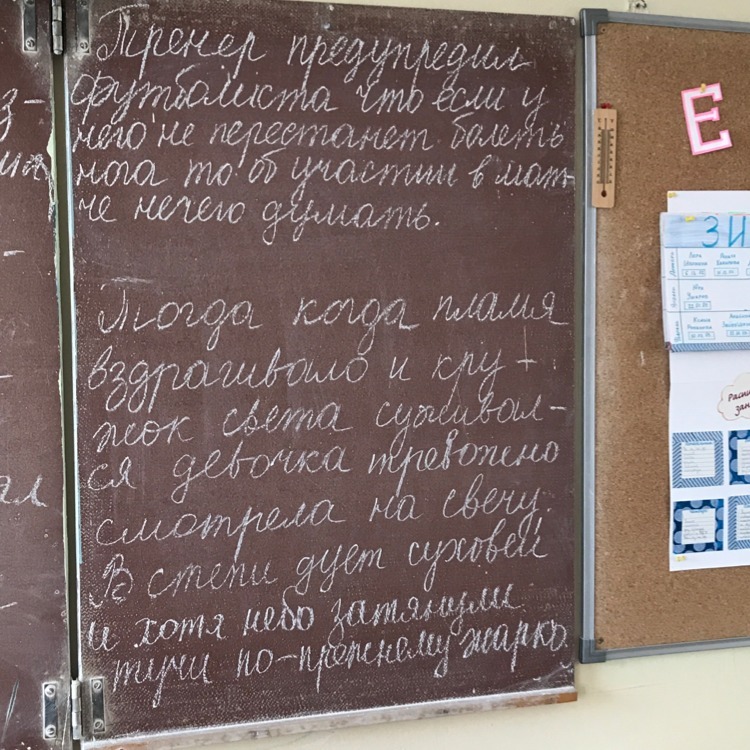 Тренер предупредил
футболиста что если у
него не перестанет болеть
нога то об участии в мат-
че нечего думать.
Тогда когда пламя
вздрагивало и кру-
жок света суживал-
ся девочка тревожно
смотрела на свечу.
В степи дует суховей
и хотя небо затянули
тучи по-прежнему жарко
з-
ал
Е
ЗИ